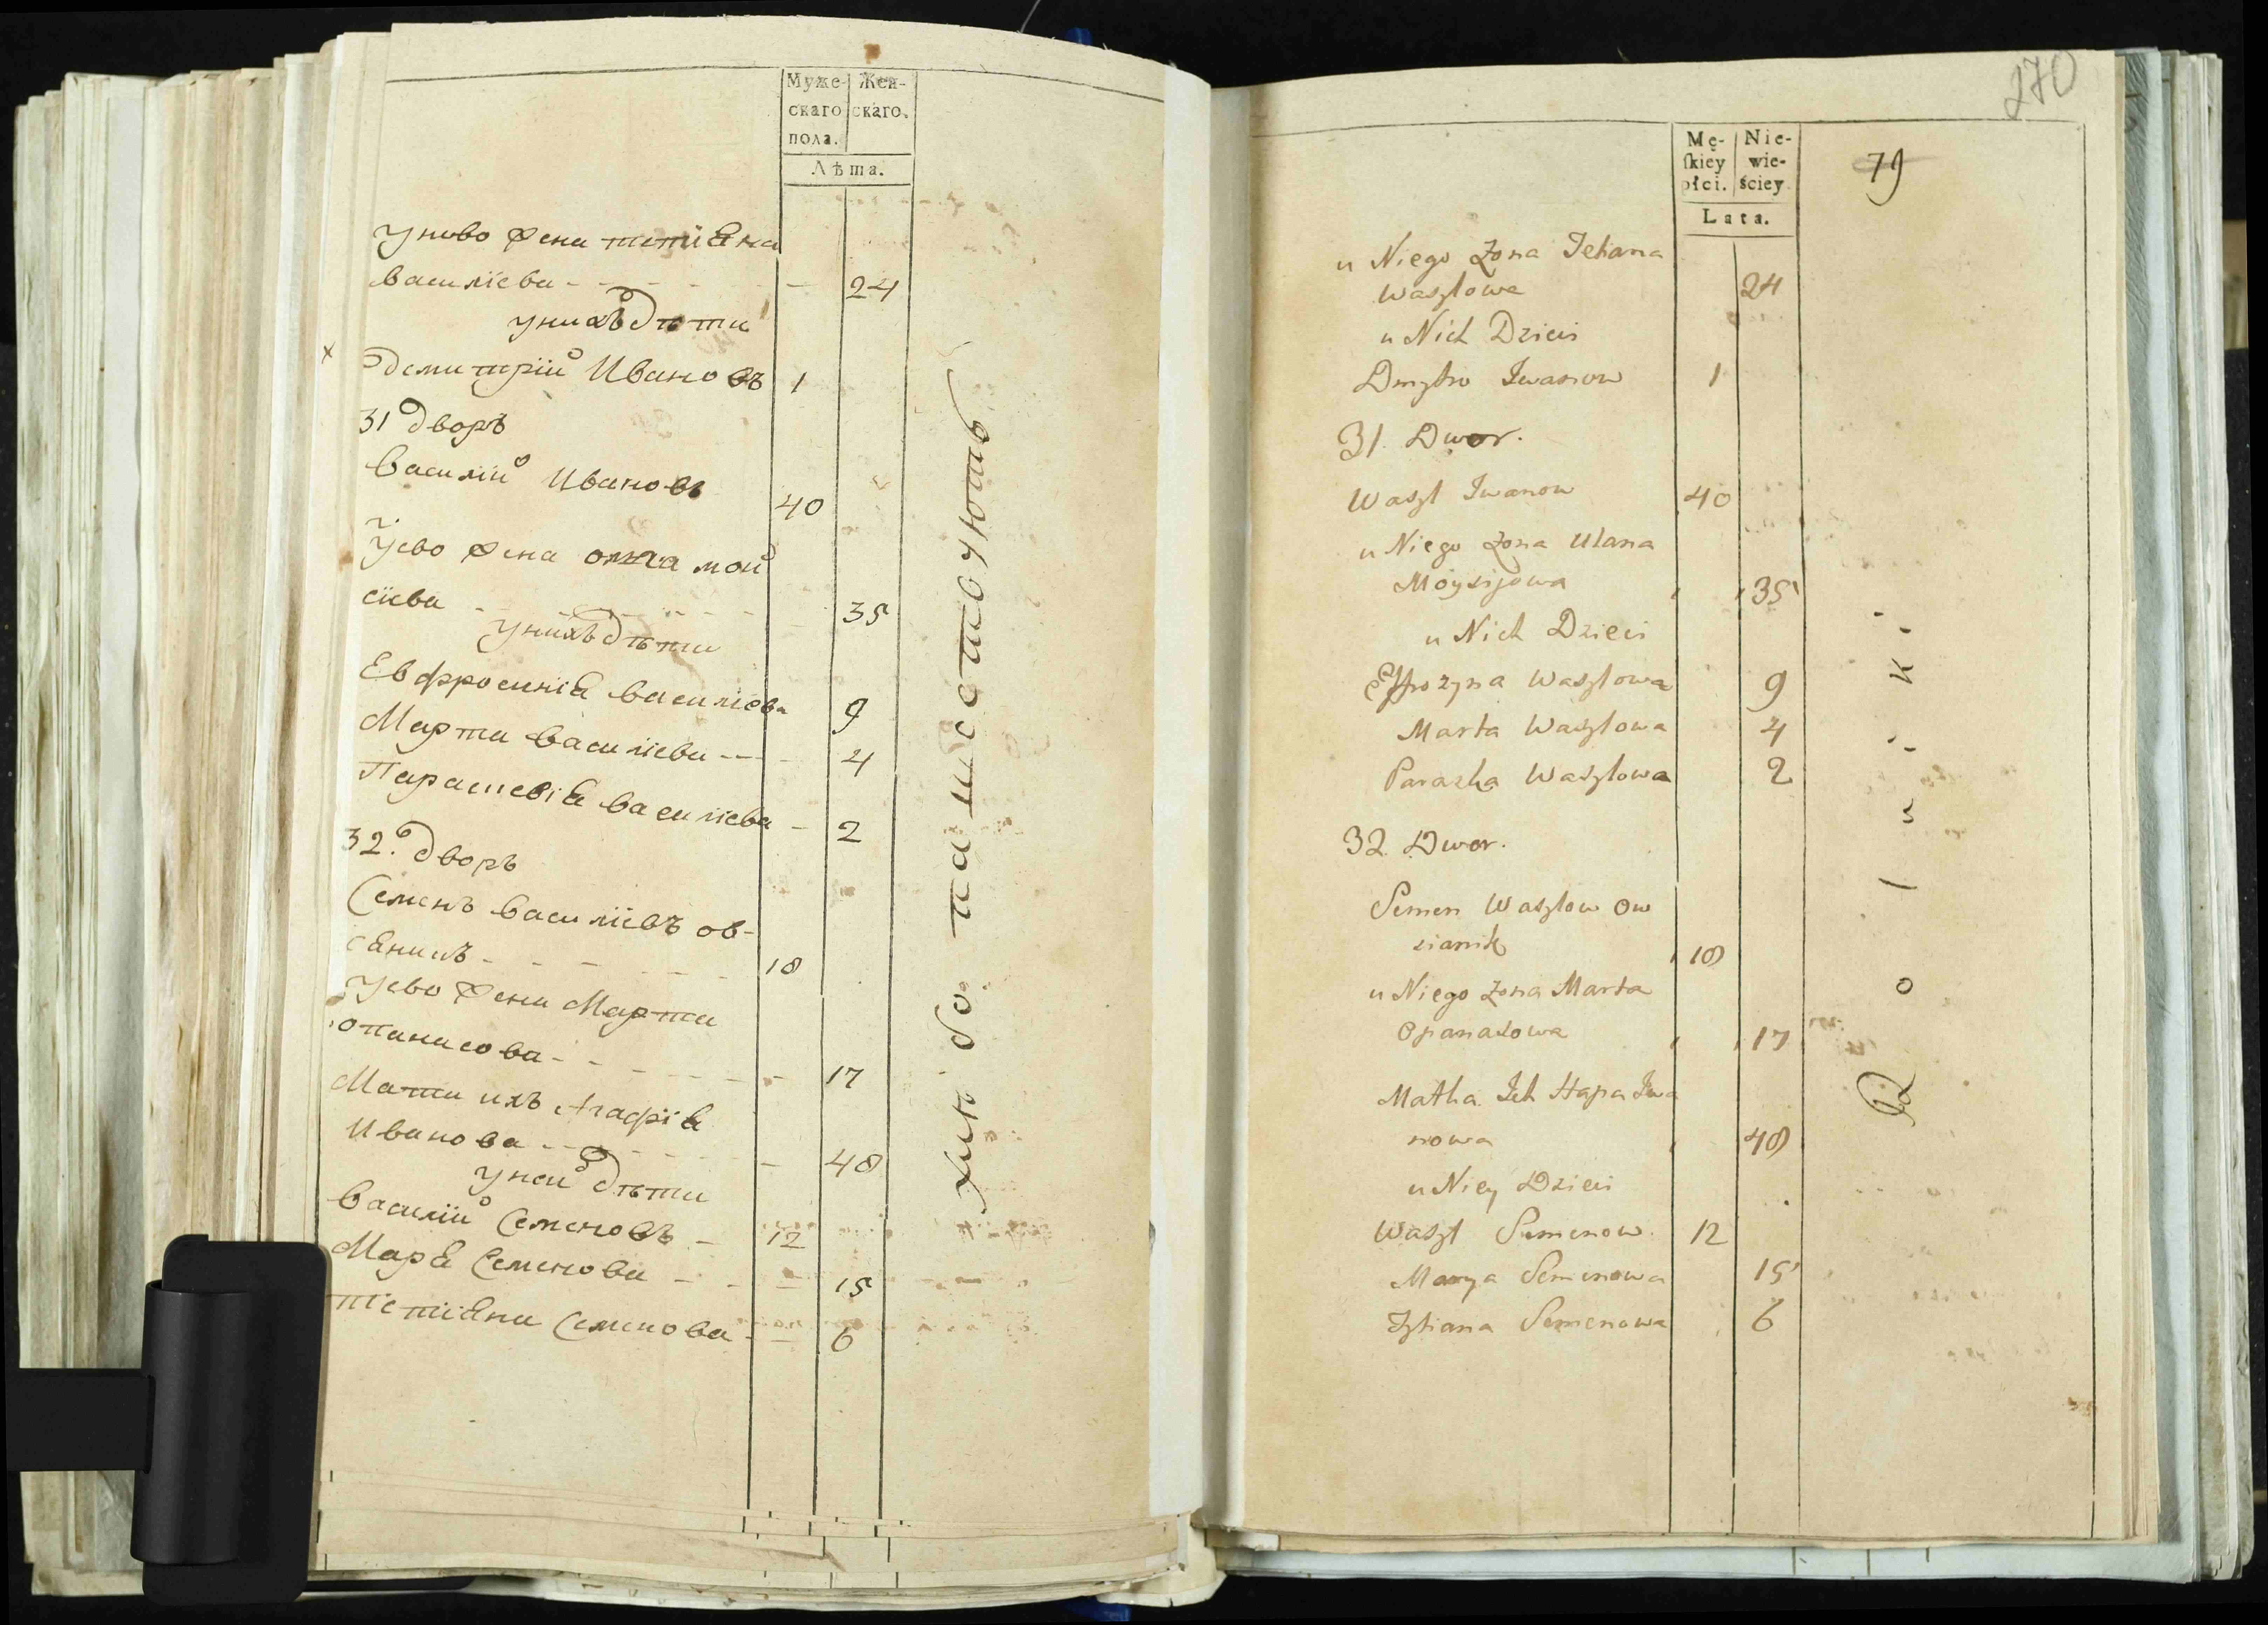 Муже- Жен-
скаго скаго.
пола.
Лѣта.
у ново жена тетіяна
василіева - - - - - - 24
у нихъ дѣти
× демитрій Ивановъ 1
31 дворъ
василій Ивановъ 40
У ево жена олга мой
сіева - - - - - - 35
у нихъ дѣти
Евфросинія василіева 9
Марта василіева - - - 4
Параскевія василіева - 2
32. дворъ
Семенъ василіевъ ов-
сяникъ - - - - - - 18
У ево жена Марта
опанасова - - - - - - 17
Мати ихъ Агафія
Иванова - - - - - - 48
у ней дѣти
василій Семеновъ - 12
Маря Семенова - - - 15
тетіяна Семенова - - 6
хлѣбопашествуютъ
270
Mę- Nie-
ſkiey wie-
płci. ściey.
Lata.
79
u Niego Zona Tetiana
Waszlowa 24
u Nich Dzieci
Dmytro Iwanow 1
31. Dwor.
Waszl Iwanow 40
u Niego Zona Ulana
Moysijowa 35
u Nich Dzieci
Efrozyna Waszlowa 9
Marta Waszlowa 4
Paraska Waszlowa 2
32. Dwor.
Semen Waszlow Ow
sianik 18
u Niego Zona Marta
Opanasowa 17
Matka Ich Hapa Iwa
nowa 48
u Niey Dzieci
Waszl Semenow. 12
Marya Semenowa 15
Tytiana Semenowa 6
Rolniki.